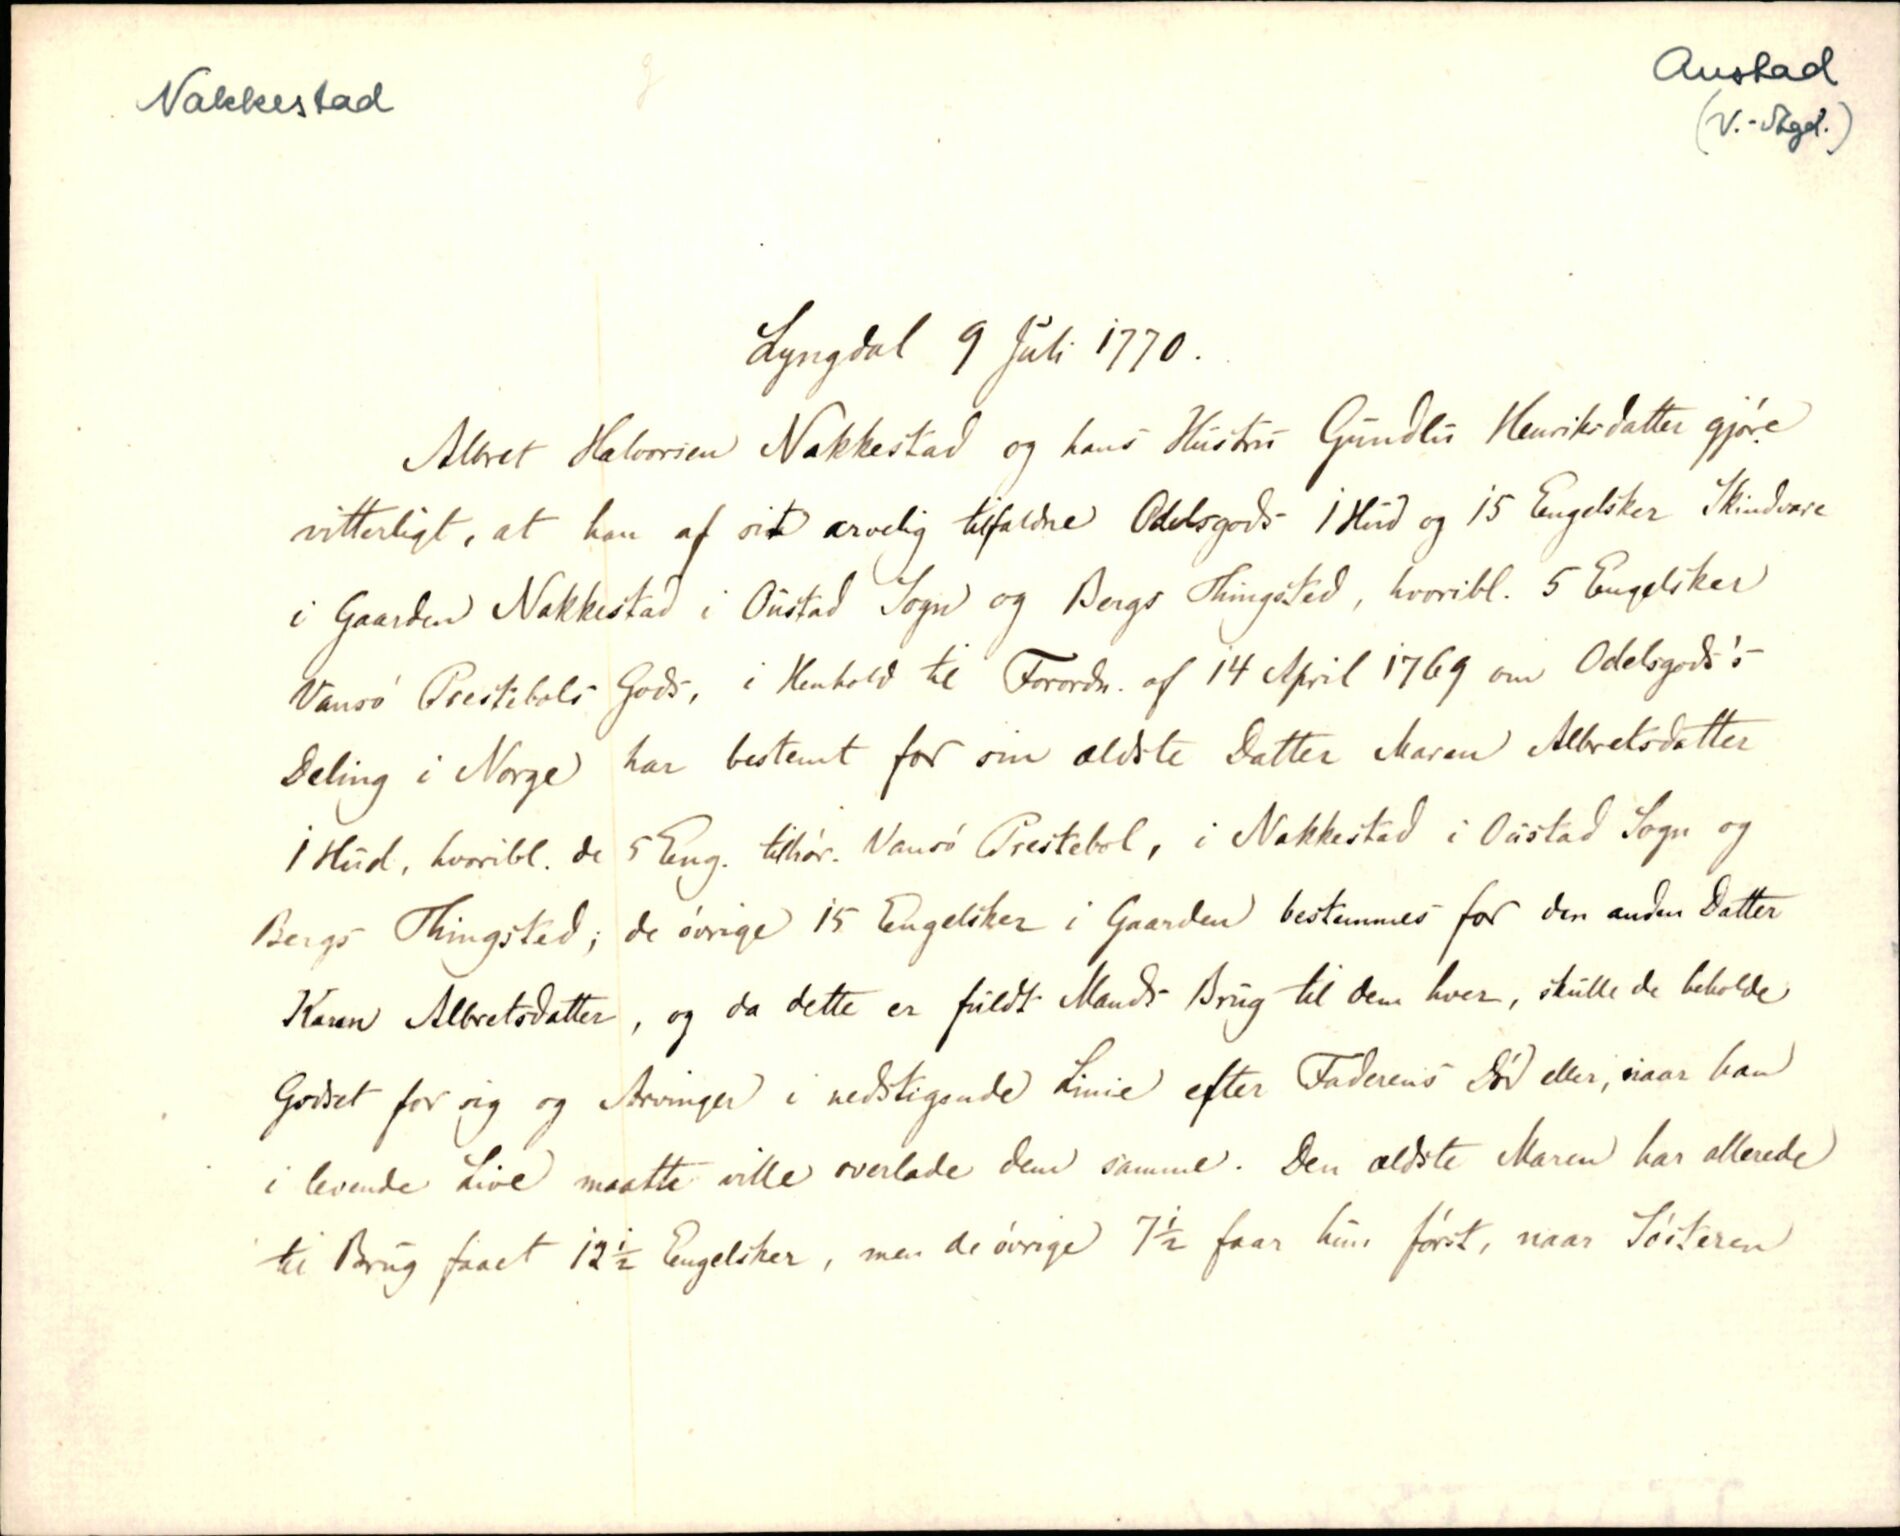 Nakkestad
Austad
(V.-Agd.)
Lyngdal 9 Juli 1770.
Albret Halvorsen Nakkestad og hans Hustru Gundlu Henriksdatter gjøre
vitterligt, at han af sit arvelig tilfaldne Odelsgods 1 Hud og 15 Engelsker Skindvare
i Gaarden Nakkestad i Oustad Sogn og Bergs Thingsted, hvoribl. 5 Engelsker
Vansø Prestebols Gods, i Henhold til Forordn. af 14 April 1769 om Odelsgods's
Deling i Norge har bestemt for sin ældste Datter Maren Albretsdatter
1 Hud, hvoribl. de 5 Eng. tilhør. Vansø Prestebol, i Nakkestad i Oustad Sogn og
Bergs Thingsted; de øvrige 15 Engelsker i Gaarden bestemmes for den anden Datter
Karen Albretsdatter, og da dette er fuldt Mands Brug til dem hver, skulle de beholde
Godset for sig og Arvinger i nedstigende Linie efter Faderens Død eller, naar han
i levende Live maatte ville overlade dem samme. Den ældste Maren har allerede
til Brug faaet 12½ Engelsker, men de øvrige 7½ faar hun først, naar Søsteren